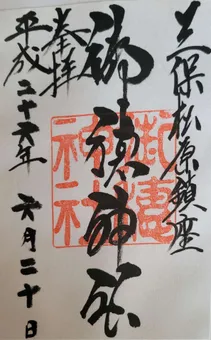 三保松原鎮座
御穂神社
奉拝
平成二十六年 六月二十日
御穂
神社